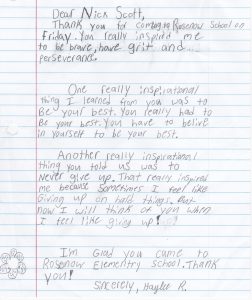 Dear Nick Scott,
Thank you for coming to Rosenow School on
Friday. You really inspired me
to be brave, have grit and...
perseverance.
One really inspirational
thing I learned from you was to
Be your best. You really had to
Be your best. You have to belive
in yourself to be your best.
Another really inspirational
thing you told us was to
Never give up. That really inspired
me because sometimes I feel like
Giving up on hard things. But
now I will think of you when
I feel like giving up!
I'm Glad you came to
Rosenow Elementary school. Thank
you!
Sincerely, Haylee R.